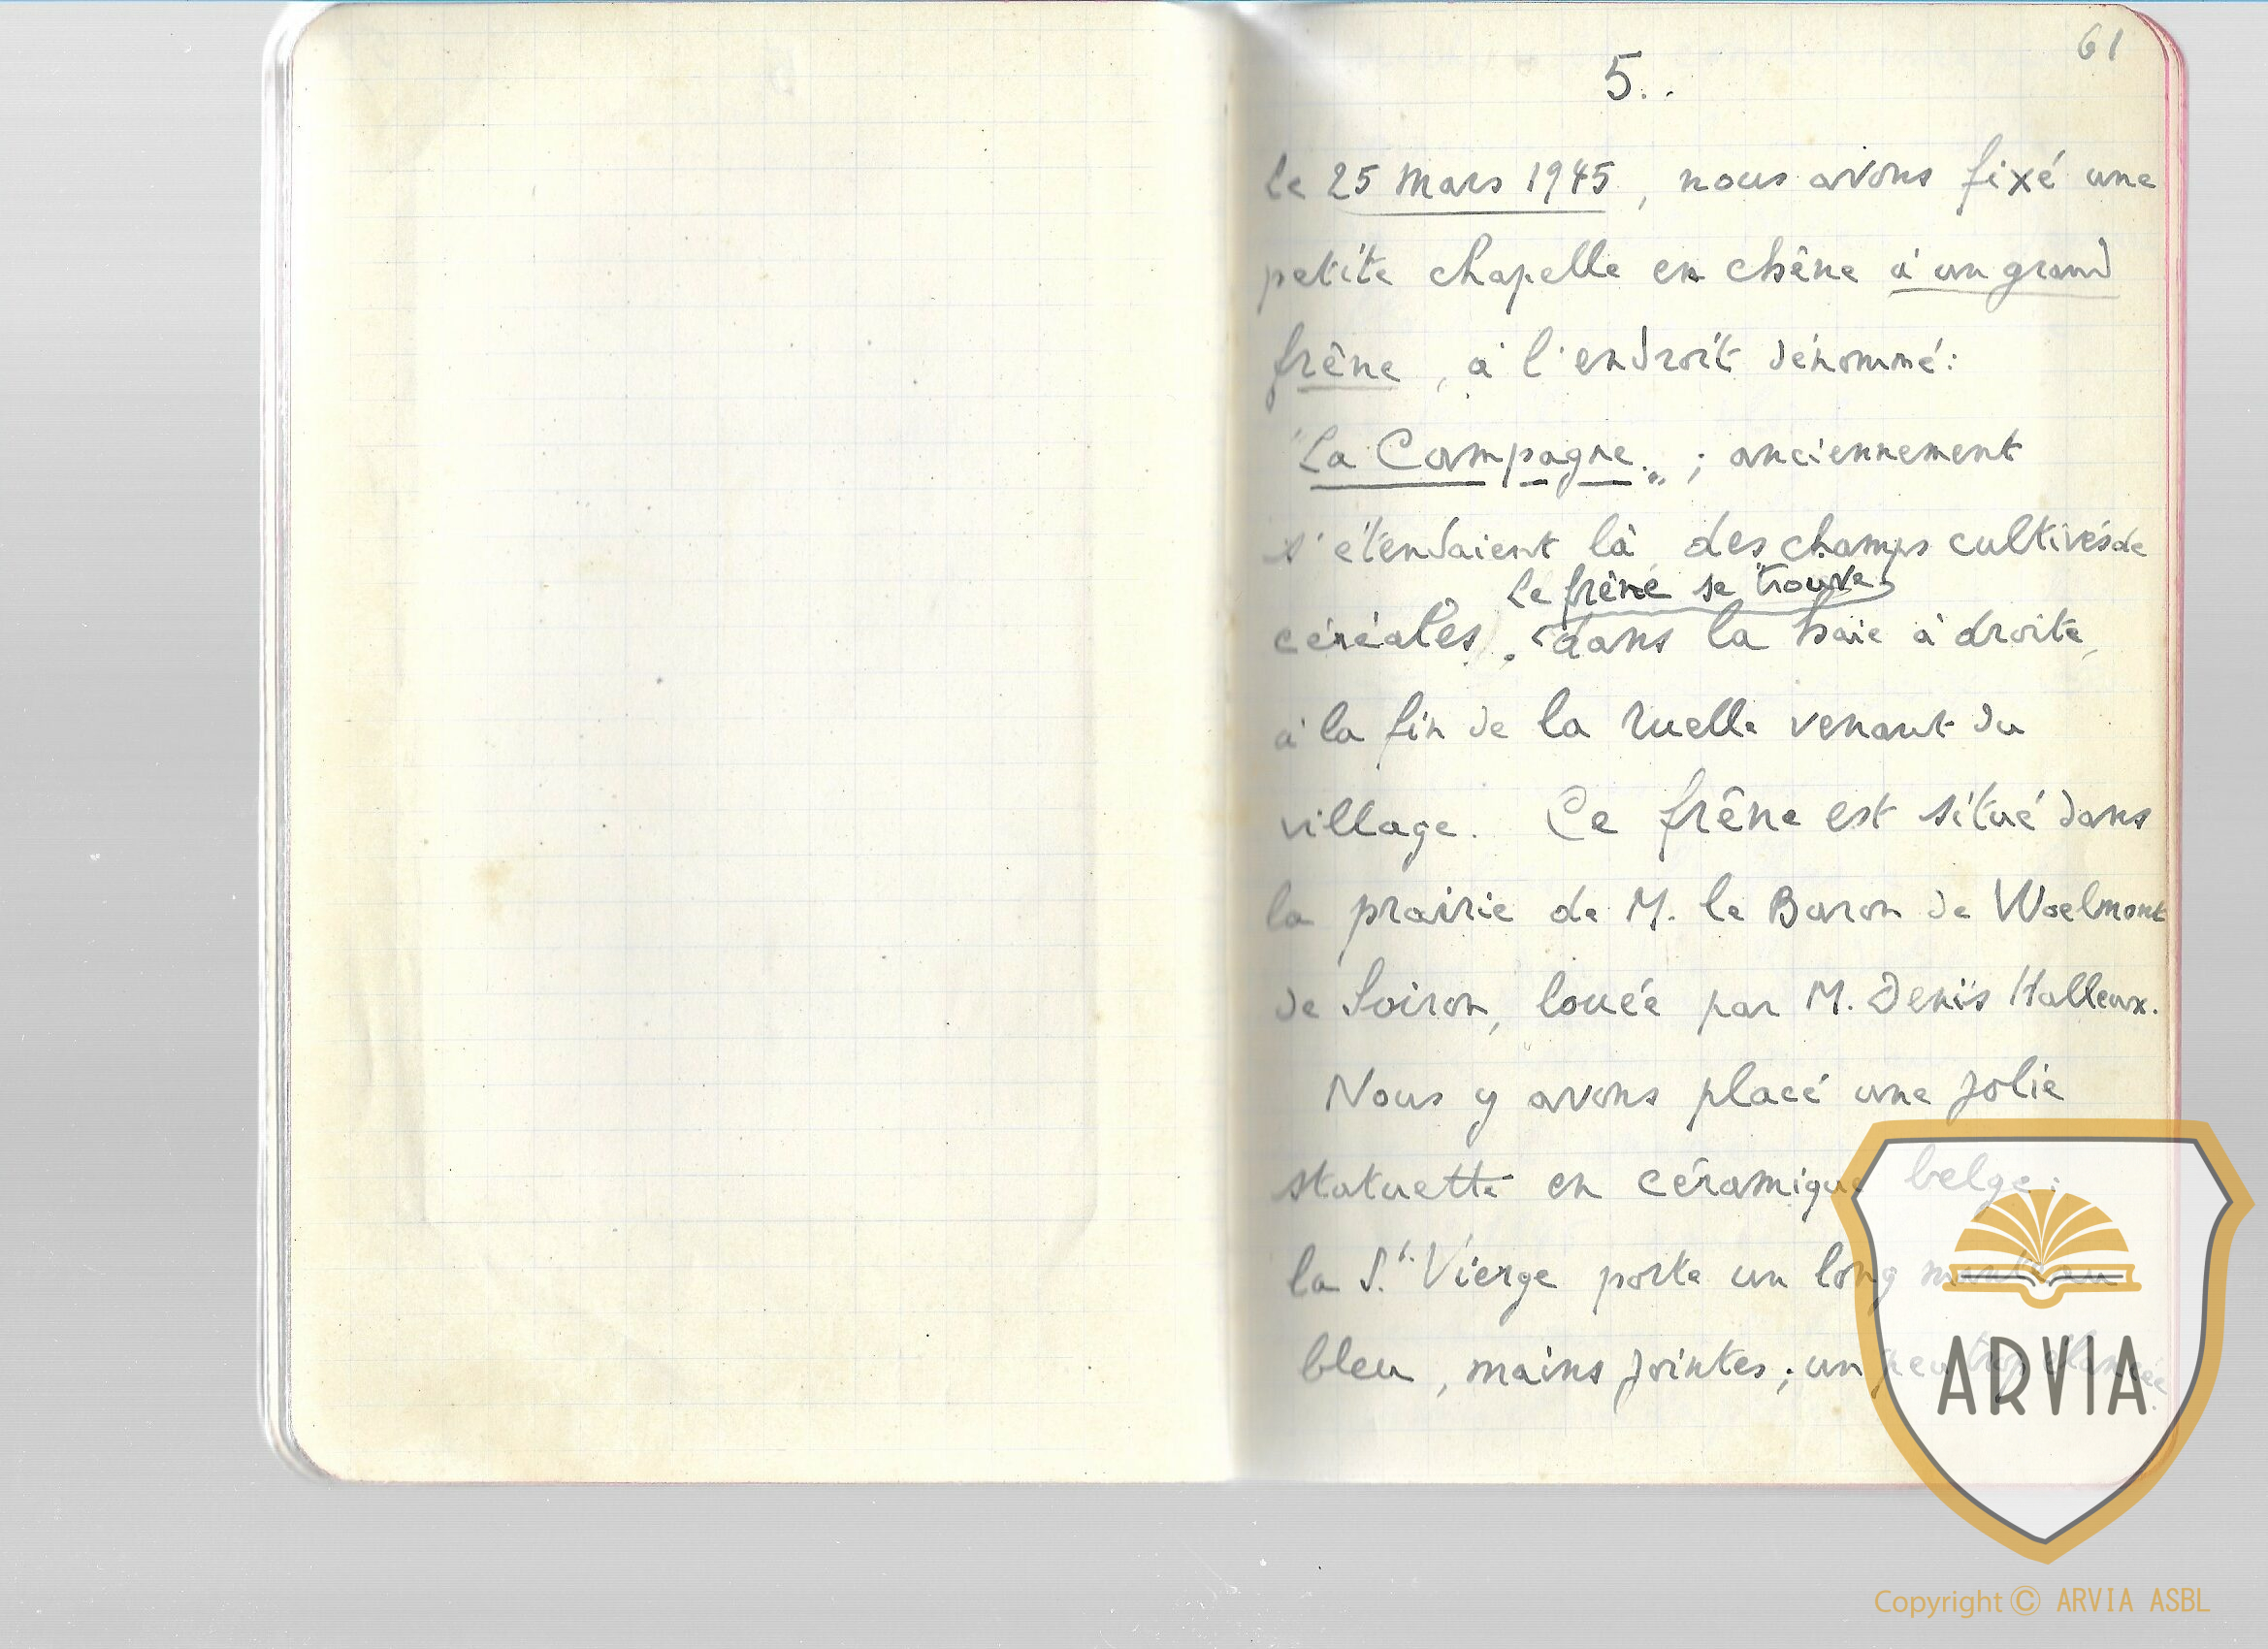 61
5..
le 25 mars 1945, nous avons fixé une
petite chapelle en chêne à un grand
frêne, à l'endroit dénommé:
"La Campagne„; anciennement
s'étendaient là des champs cultivés de
Le frêne se trouve
céréales. dans la haie à droite,
à la fin de la ruelle venant du
village. Ce frêne est situé dans
la prairie de M. le Baron de Woelmont
de Soiron, louée par M. Denis Halleux.
Nous y avons placé une jolie
statuette en céramique belge:
la Ste Vierge porte un long manteau
bleu, mains jointes; un peu trop élancée.
ARVIA
Copyright © ARVIA ASBL